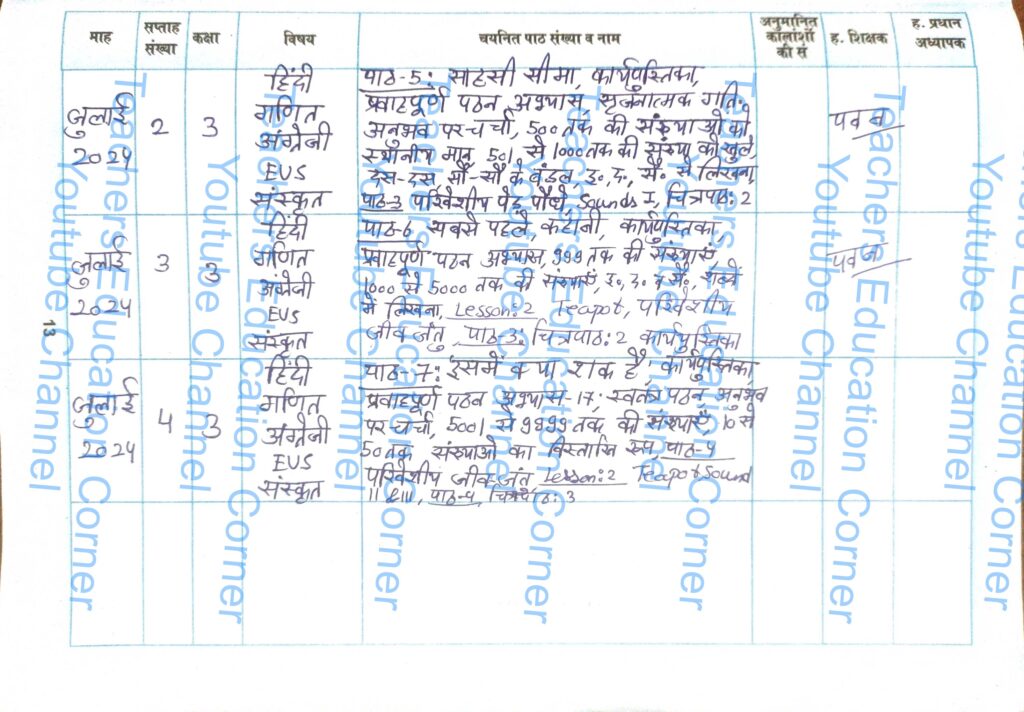 माह सप्ताह संख्या कक्षा विषय चयनित पाठ संख्या व नाम अनुमानित कालांशों की सं ह. शिक्षक ह. प्रधान अध्यापक
हिंदी पाठ-5: साहसी सीमा, कार्यपुस्तिका,
जुलाई 2024 2 3 गणित प्रवाहपूर्ण पठन अभ्यास, सृजनात्मक गति- पवन
अंग्रेजी अनुभव पर चर्चा, 500 तक की संख्याओं को
स्थानीय मान, 501 से 1000 तक की संख्या को खुले,
EUS दस-दस, सौ-सौ के बंडल, इ.द. सै. से लिखना,
संस्कृत पाठ-3 परिवेशीय पेड़ पौधे, Sounds I, चित्रपाठ: 2
हिंदी पाठ-6 सबसे पहले, कहानी, कार्यपुस्तिका,
जुलाई 2024 3 3 गणित प्रवाहपूर्ण पठन अभ्यास, 999 तक की संख्याएं, पवन
अंग्रेजी 1000 से 5000 तक की संख्याएं, इ. द. व सै. शब्दों
EUS में लिखना, Lesson: 2 Teapot, परिवेशीय
संस्कृत जीव जंतु, पाठ-3: चित्रपाठ: 2 कार्यपुस्तिका
हिंदी पाठ-7: इसमें क्या शक है, कार्यपुस्तिका,
जुलाई 2024 4 3 गणित प्रवाहपूर्ण पठन अभ्यास-17, स्वतंत्र पठन, अनुभव
अंग्रेजी पर चर्चा, 5001 से 9999 तक की संख्याएँ, 10 से
50 तक संख्याओं का विस्तारित रूप, पाठ-4
EUS परिवेशीय जीव जंतु Lesson: 2 Teapot Sound
संस्कृत II & III, पाठ-4, चित्रपाठ: 3
13
Teachers Education Corner
Youtube Channel
Teachers Education Corner
Youtube Channel
Teachers Education Corner
Youtube Channel
Teachers Education Corner
Youtube Channel